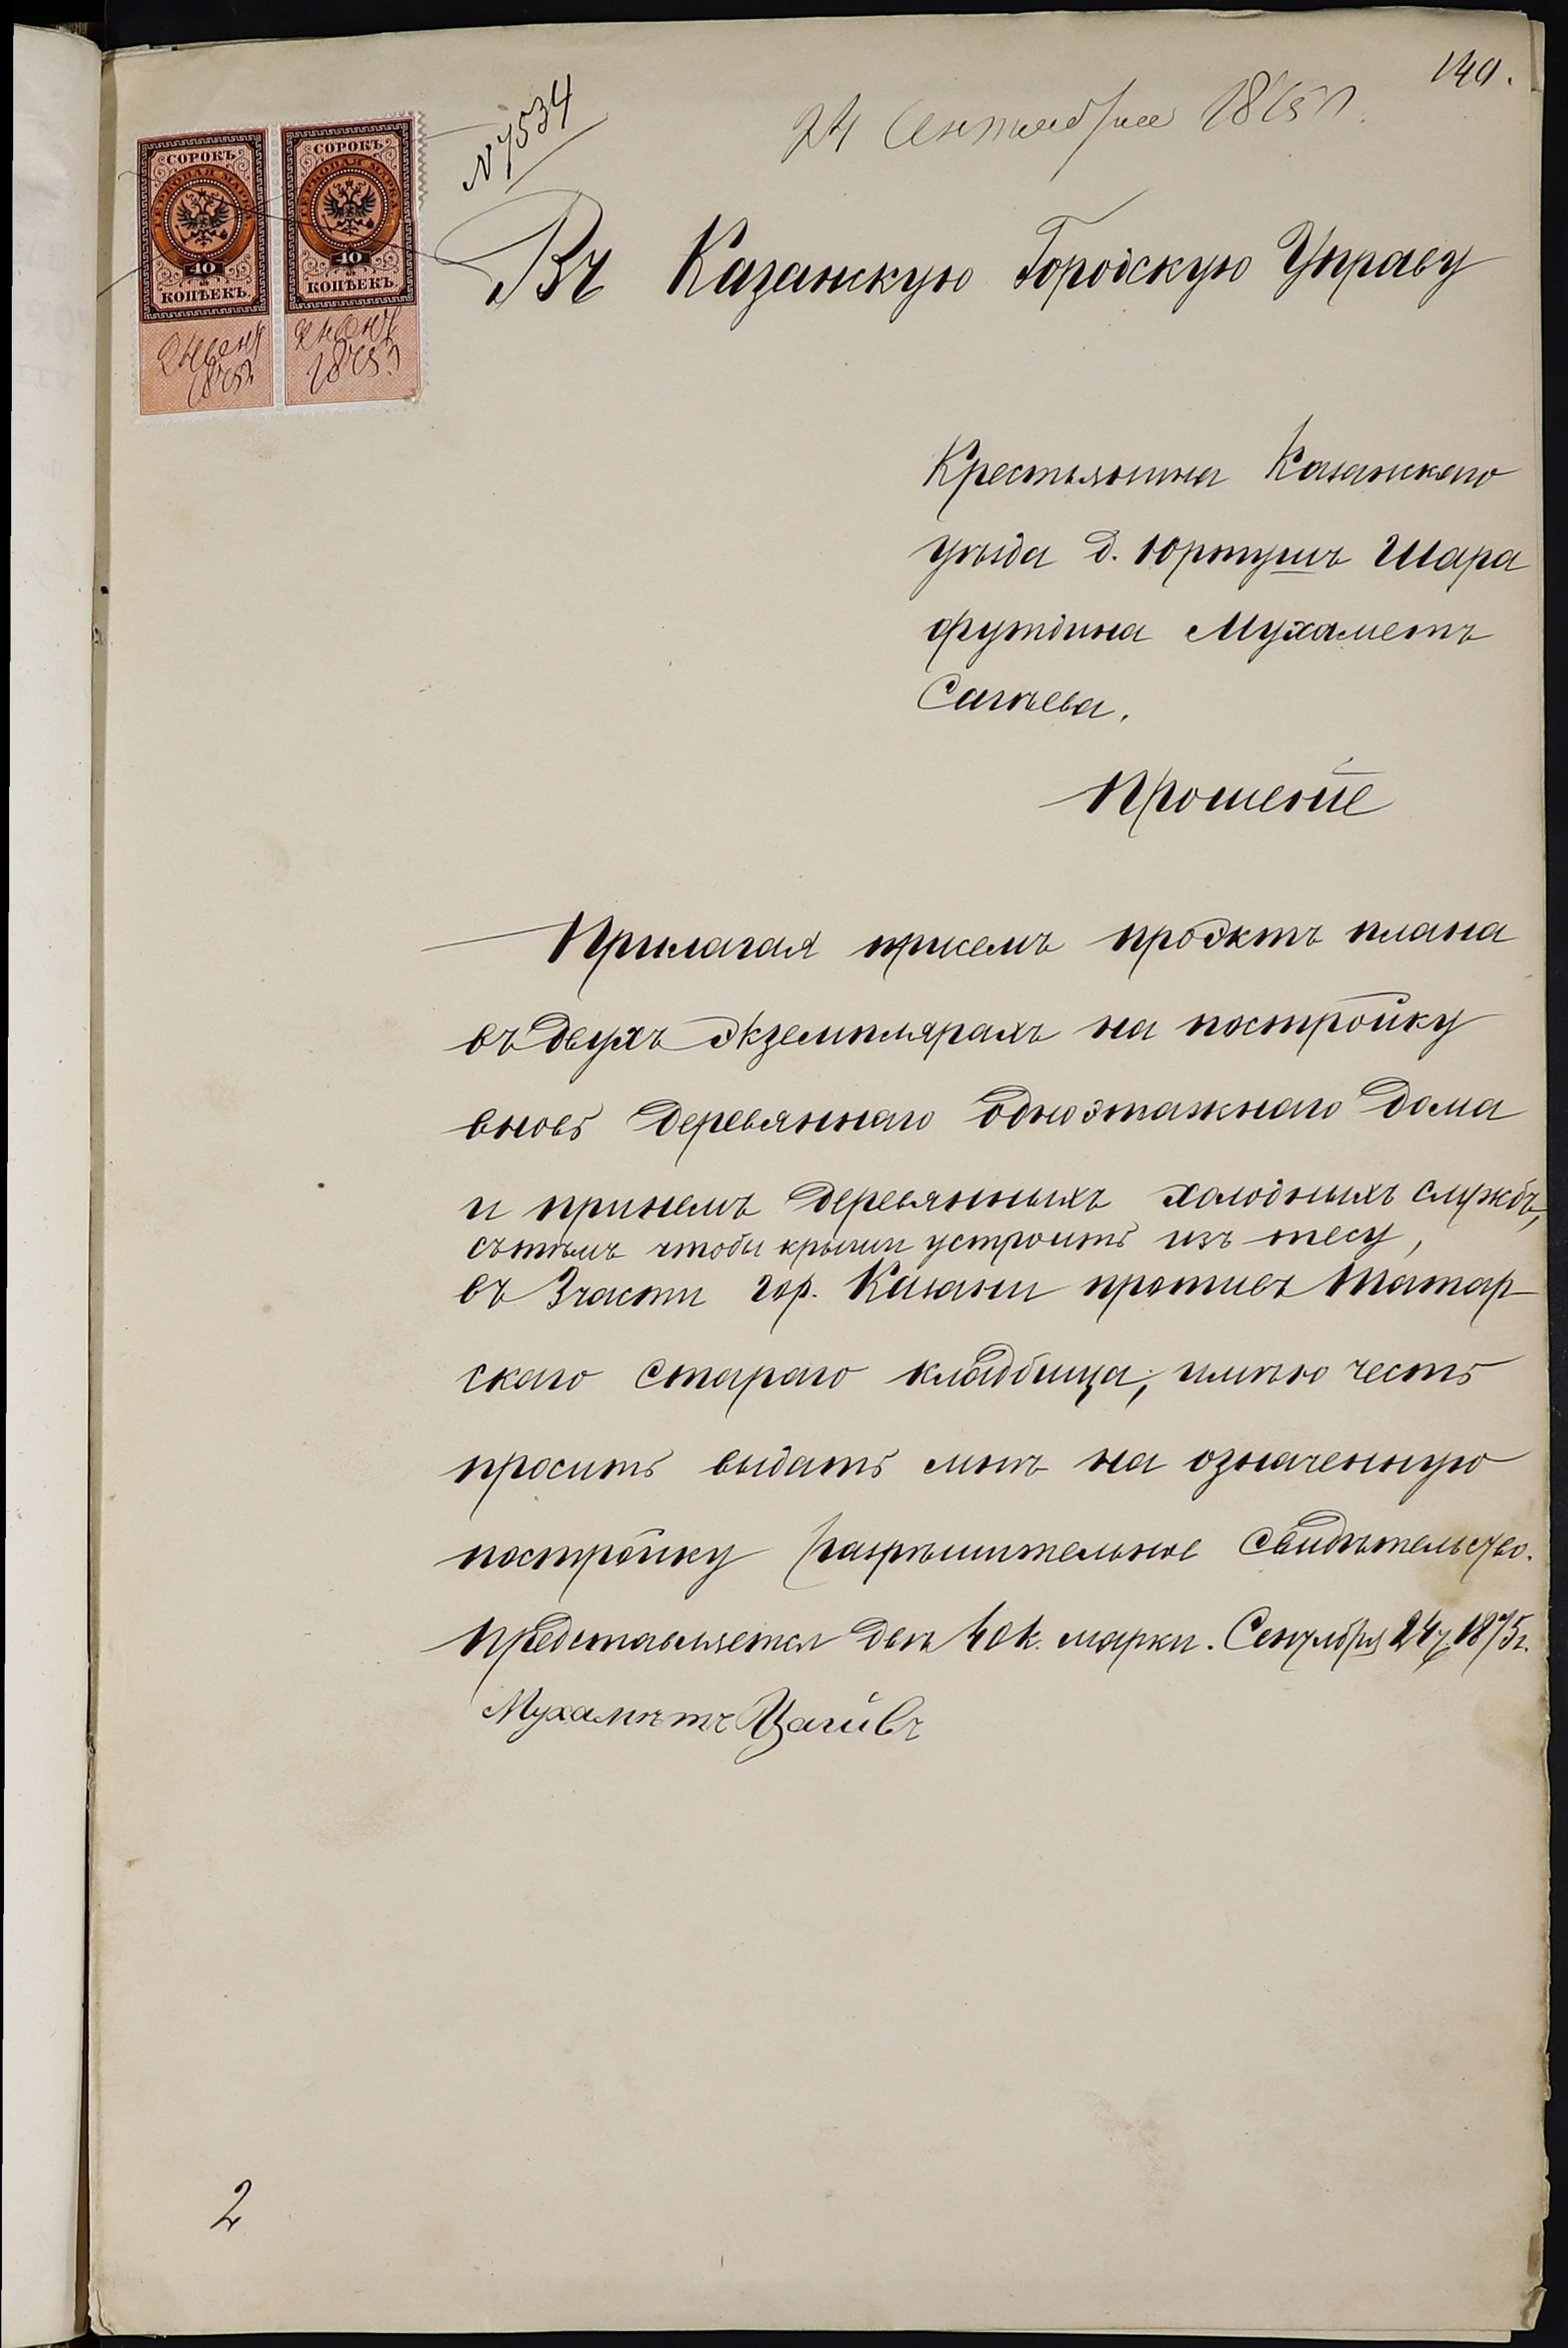 140.
24 Сентября 1875 г.
№ 7534
СОРОКЪ СОРОКЪ
ГЕРБОВАЯ МАРКА ГЕРБОВАЯ МАРКА
40 40
КОПѢЕКЪ. КОПѢЕКЪ.
24 Сент 24 Сент
1875 г. 1875 г.
Въ Казанскую Городскую Управу
Крестьянина Казанскаго
уѣзда д. Юртушъ Шара
футдина Мухаметъ
Сагѣева.
Прошеніе
Прилагая присемъ проэктъ плана
въ двухъ экземплярахъ на постройку
вновь деревяннаго одноэтажнаго дома
и принемъ деревянныхъ холодныхъ службъ,
сътѣмъ чтобы крыши устроить изъ тесу,
въ 3 части гор. Казани противъ Татар
скаго стараго кладбища, имѣю честь
просить выдать мнѣ на означенную
постройку разрѣшительное свидѣтельство.
Представляется двѣ 40 к. марки. Сентября 24 ч 1875 г.
Мухамѣтъ
2